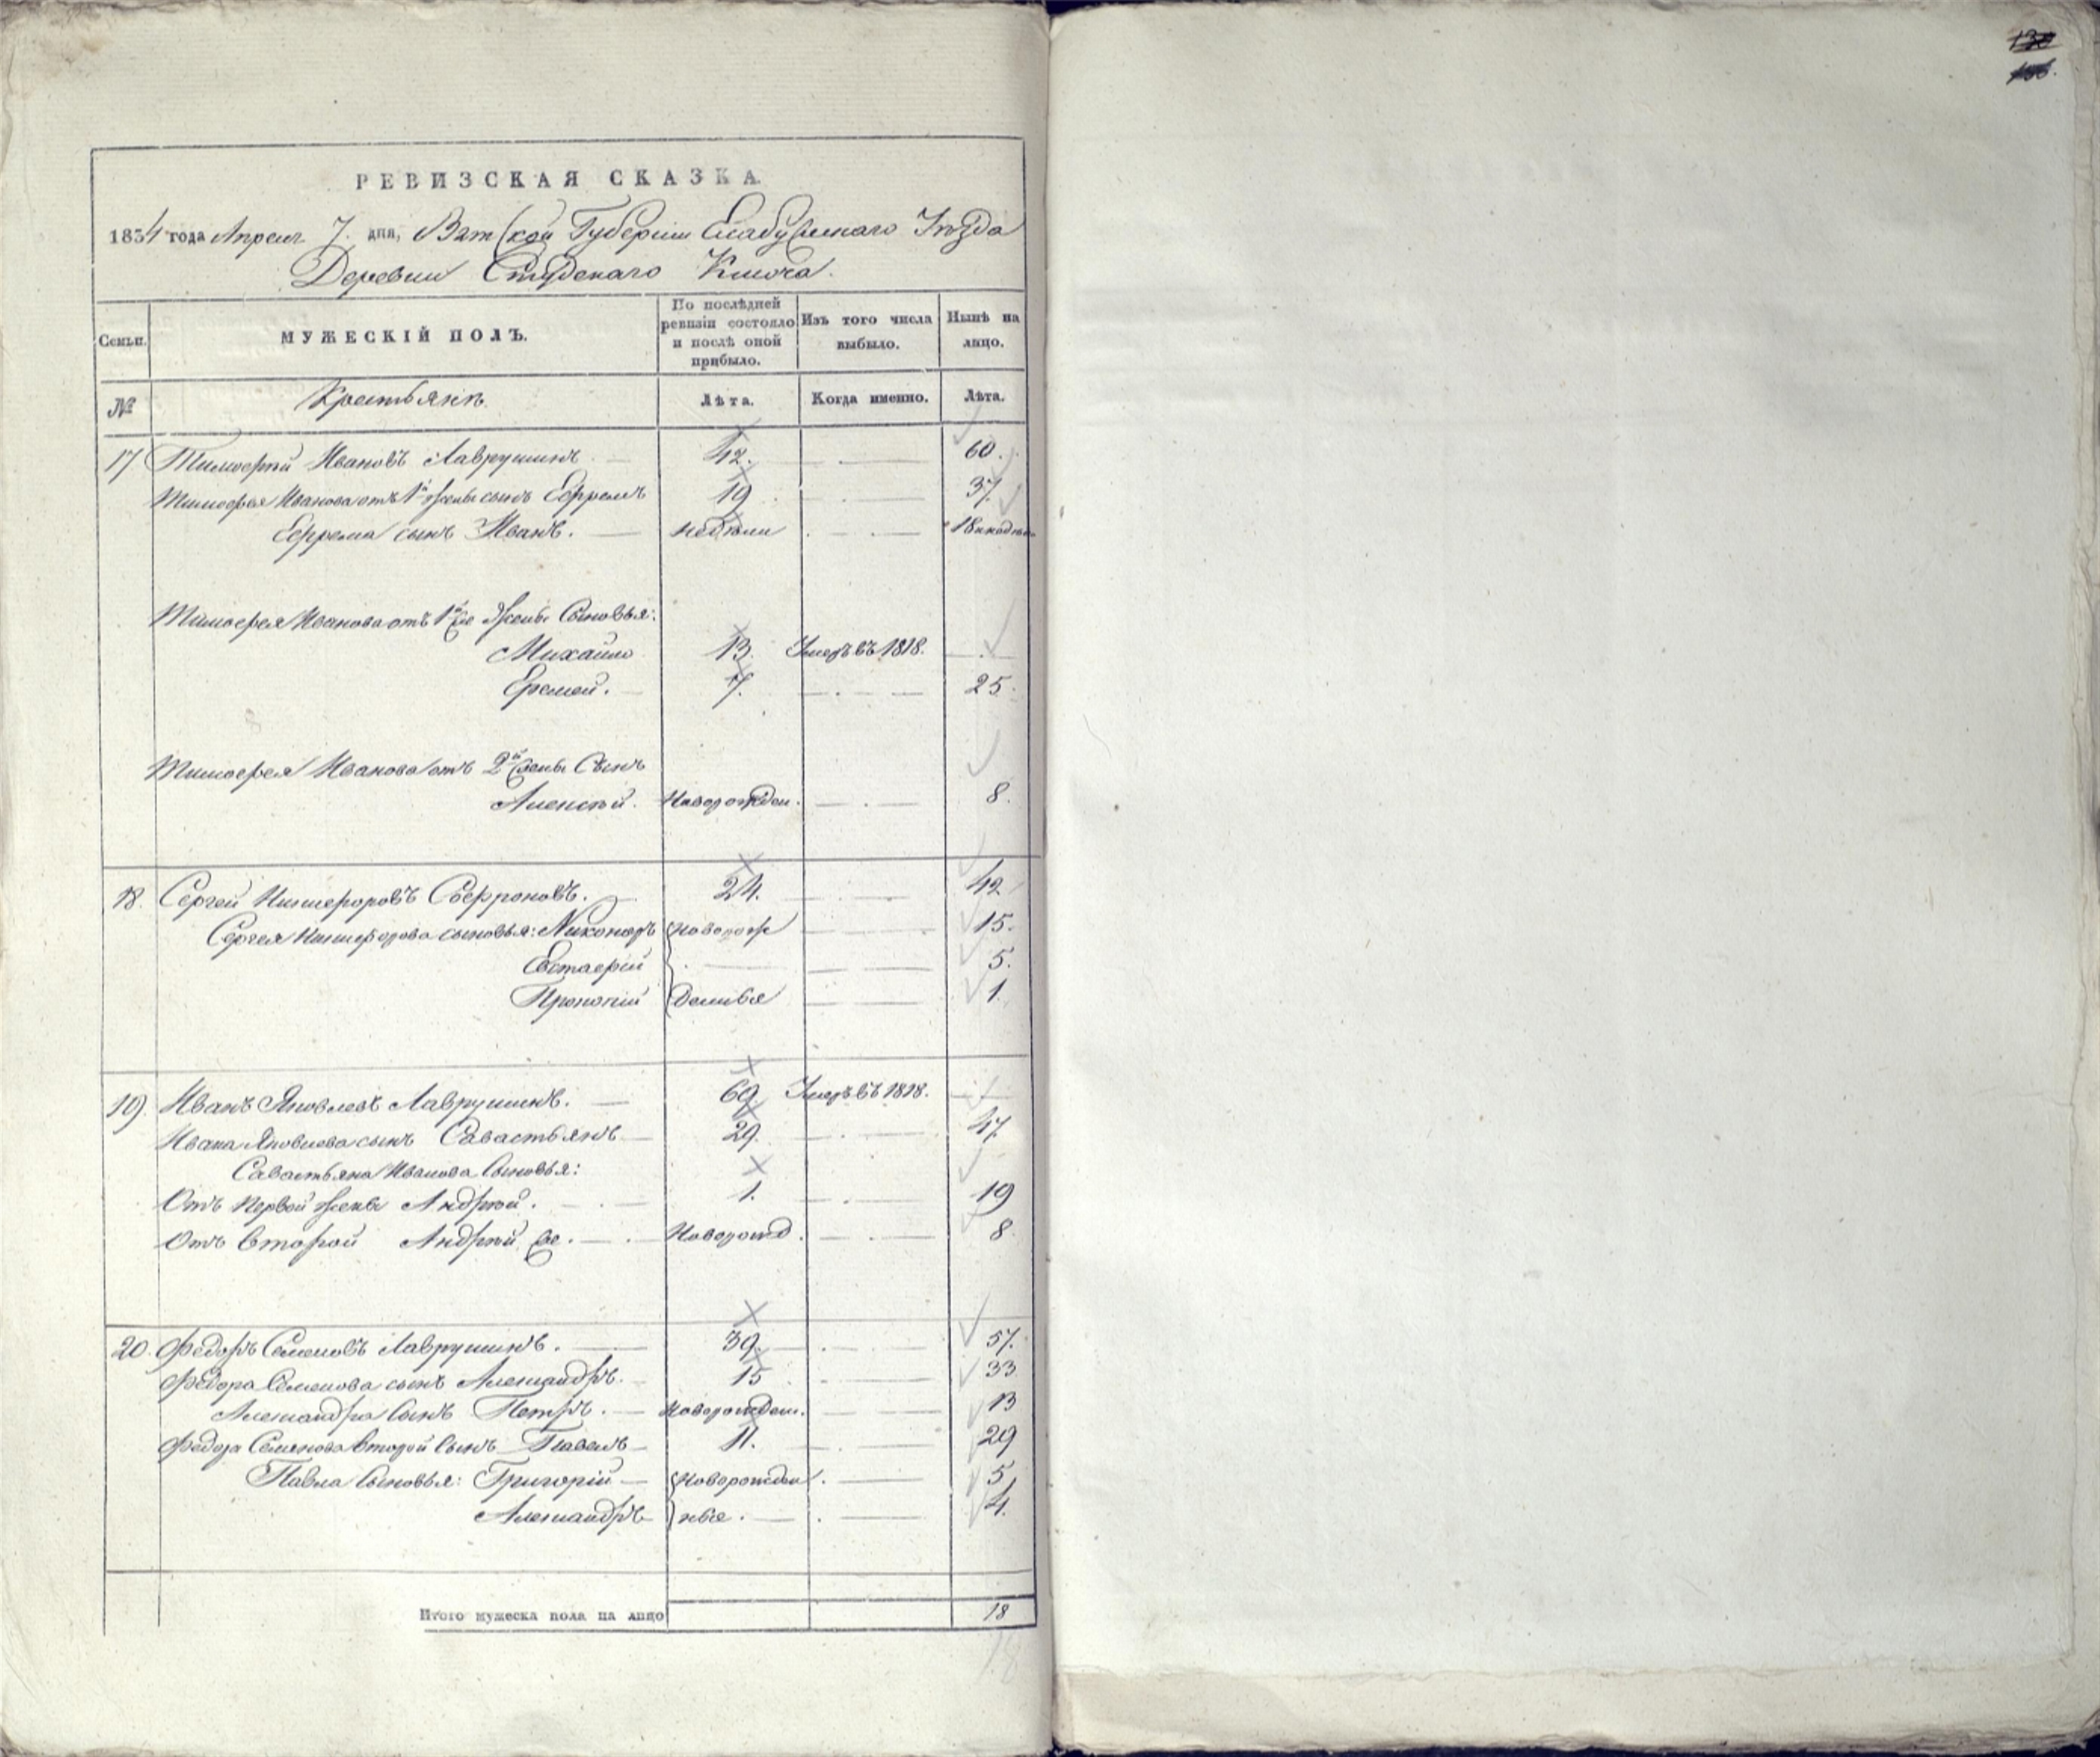 130
136.
РЕВИЗСКАЯ СКАЗКА.
1834 года Апреля 7. дня, Вятской Губернiи Елабужскаго Уѣзда
Деревни Студенаго Ключа.
Семьи.
МУЖЕСКIЙ ПОЛЪ.
По послѣдней ревизiи состояло и послѣ оной прибыло.
Изъ того числа выбыло.
Нынѣ на лицо.
№
Крестьянъ
Лѣта.
Когда именно.
Лѣта.
17 Тимофѣй Ивановъ Лаврушинъ — 42. — . — 60.
Тимофея Иванова отъ 1й Жены сынъ Ефремъ 19 . — . — 37.
Ефрема сынъ Иванъ. — недѣли . — . — 18
Тимофея Иванова отъ 1й же Жены Сыновья:
Михайло 13. Умеръ въ 1818. — . —
Еремей. — 7. — . — 25.
Тимофея Иванова отъ 2й Жены Сынъ
Алексѣй. Новорожден. — . — 8.
18. Сергей Никифоровъ Сафроновъ. — 24. — . — 42
Сергея Никифорова сыновья: Никоноръ { Новорож — — 15.
Евстафiй . — — — 5.
Прокопiй { денныя — — 1.
19. Иванъ Яковлевъ Лаврушинъ. — 69 Умеръ въ 1818. —
Ивана Яковлева сынъ Савастьянъ — 29. — . — 47.
Савастьяна Иванова Сыновья:
Отъ Первой Жены Андрѣй. — . — 1. — . — 19
Отъ Второй Андрѣй же. — . Новорожд. — . — 8.
20. Федоръ Семеновъ Лаврушинъ. — 39. — . — 57.
Федора Семенова сынъ Александръ. — 15 . — 33
Александра Сынъ Петръ. — Новорожден. — 13
Федора Семенова Второй Сынъ Павелъ — 11. — . — 29
Павла Сыновья: Григорiй — { Новорожден . — 5
Александръ { ные. — . — 4.
Итого мужеска пола на лицо 18
18